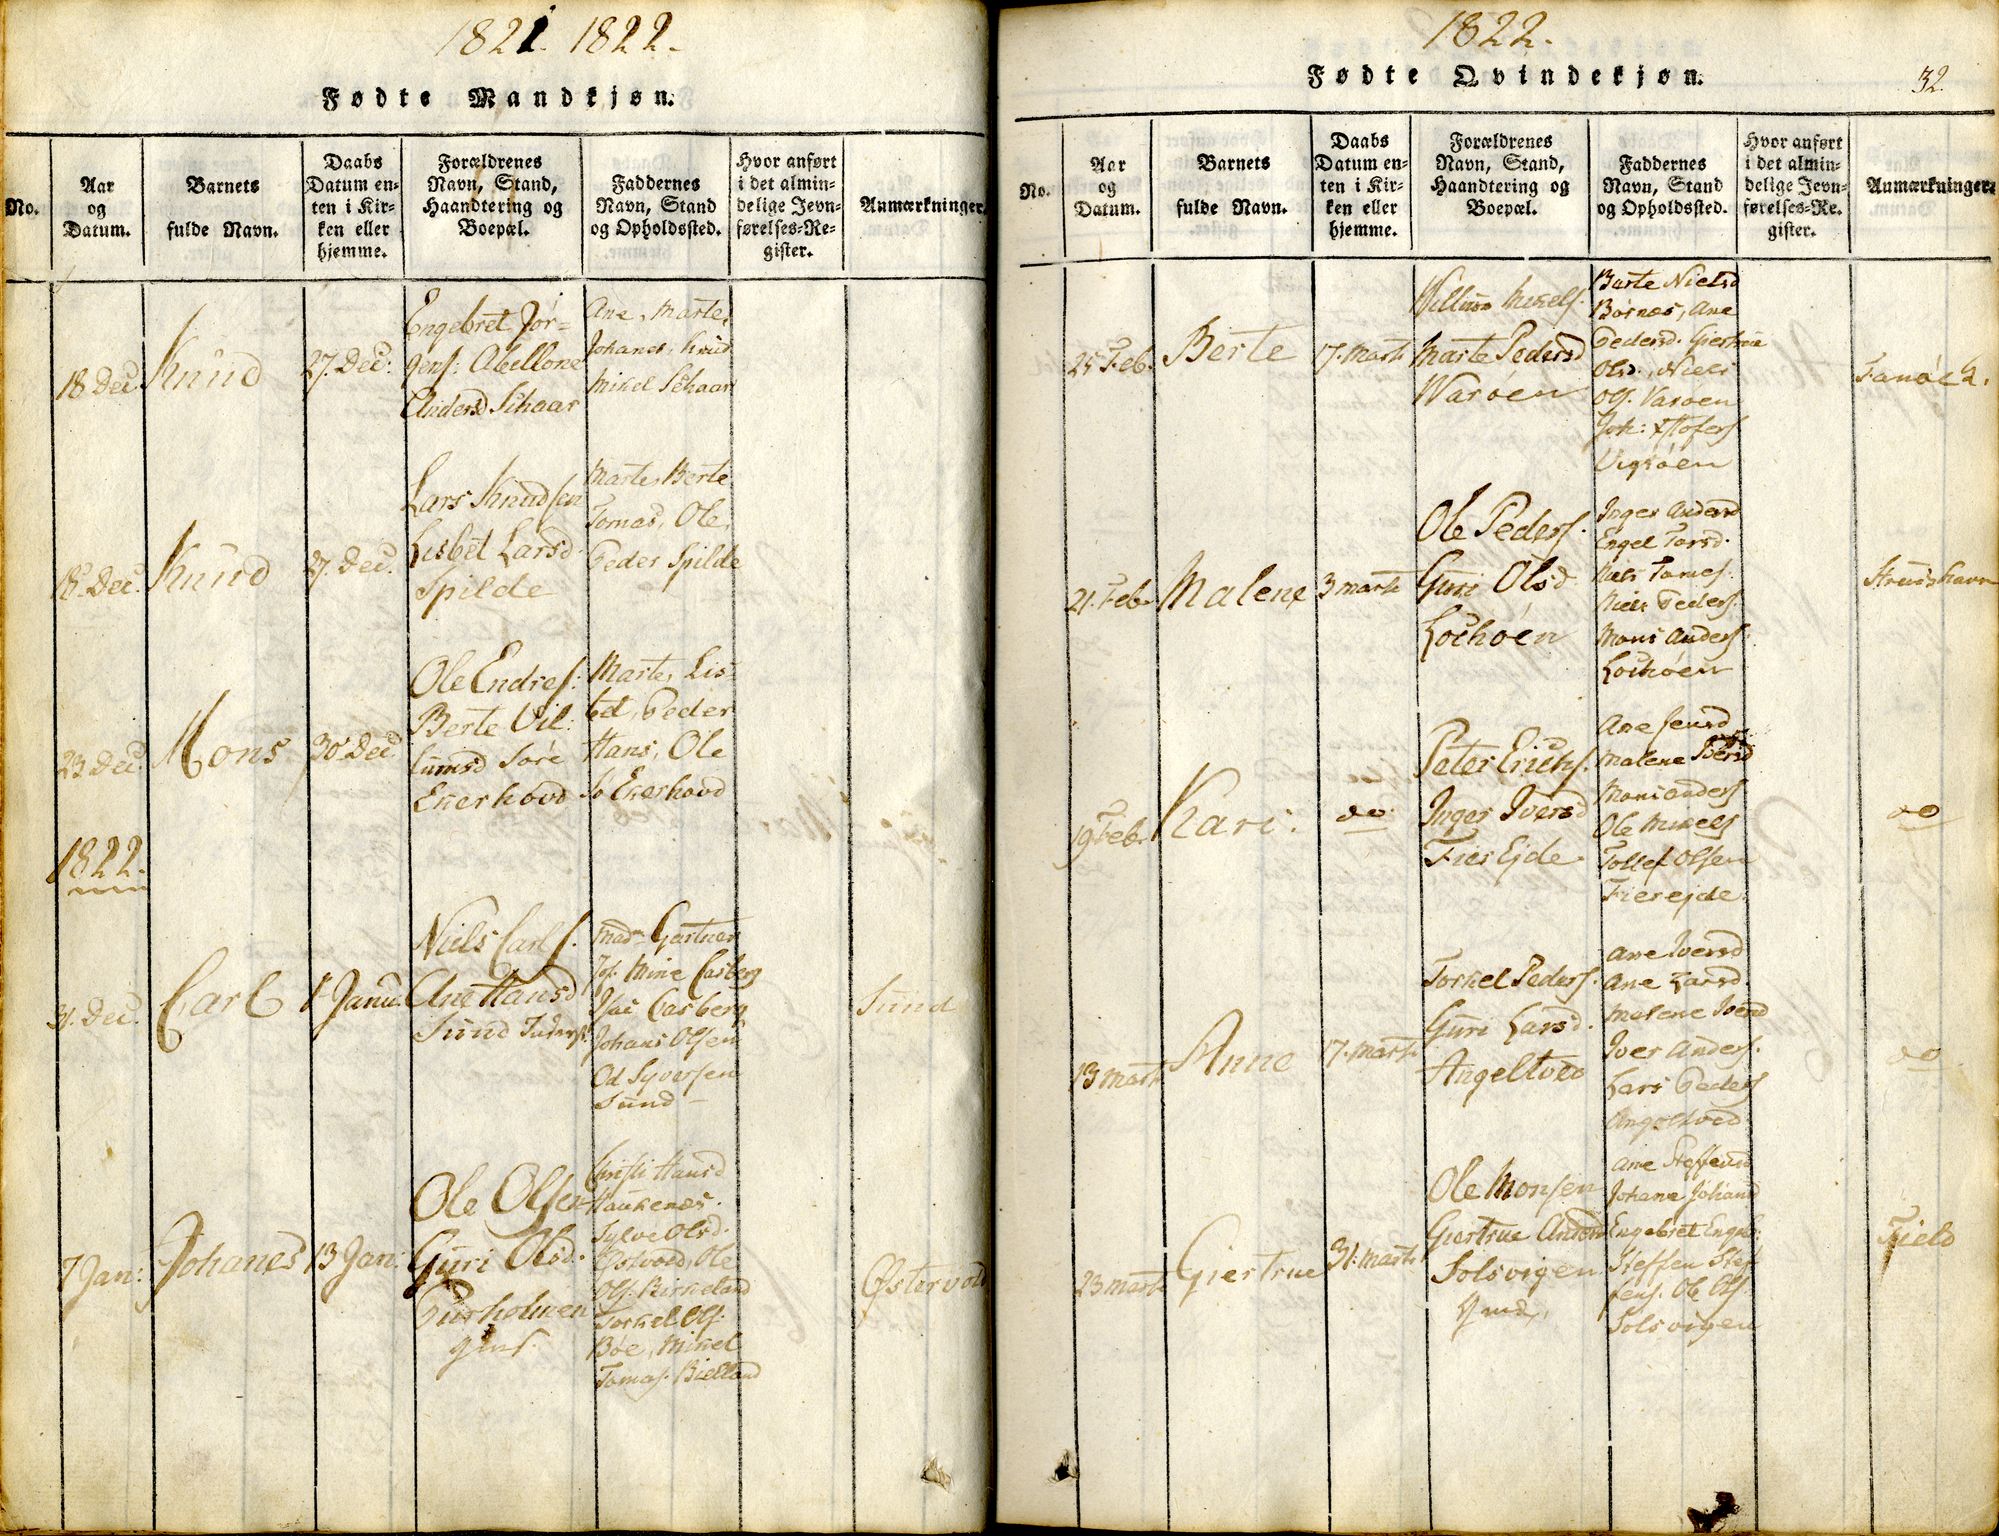 1821. 1822.
Fødte Mandkjøn.
No.
Aar
og
Datum.
Barnets
fulde Navn.
Daabs
Datum en-
ten i Kir-
ken eller
hjemme.
Forældrenes
Navn, Stand,
Haandtering og
Boepæl.
Faddernes
Navn, Stand
og Opholdssted.
Hvor anført
i det almin-
delige Jevn-
førelses-Re-
gister.
Anmærkninger.
18 Dec.
Knud
27. Dec:
Engebret Jør-
gens: Abellone
Andersd Skaar
Ane, Marte,
Johanes, Knud
Mikel Skaar
18. Dec.
Knud
27. Dec.
Lars Knudsen
Lisbet Larsd.
Spilde
Marte, Berte
Tomas, Ole,
Peder Spilde
23 Dec.
Mons
30 Dec
Ole Endres:
Berte Vil:
lumsd Søre
Ekerhovd
Marte, Lis-
bet, Peder
Hans, Ole
So Ekerhovd
1822.
31. Dec.
Carl
1 Janu.
Niels Carls.
Ane Hansd
Sund
Mad. Gartner
Jof. Mine Casberg
Isac Casberg
Johans Olsen
Od Syversen
Sund
Sund
7 Jan:
Johanes
13 Jan:
Ole Olsen
Guri Olsd.
Christi Hansd
Haukenæs.
Sylve Olsd.
Østvold, Ole
Ols. Birkeland
Torkel Ols.
Bøe, Mikel
Tomas. Bielland
Østervold
1822.
Fødte Qvindekjøn.
32.
No.
Aar
og
Datum.
Barnets
fulde Navn.
Daabs
Datum en-
ten i Kir-
ken eller
hjemme.
Forældrenes
Navn, Stand,
Haandtering og
Boepæl.
Faddernes
Navn, Stand
og Opholdssted.
Hvor anført
i det almin-
delige Jevn-
førelses-Re-
gister.
Anmærkninger.
25 Feb.
Berte
17. Marts
Willum Mikels.
Marte Pedersd
Warøen
Barte Nielsd
Børnæs, Ane
Pedersd. Giertrue
Olsd., Niels
Ols. Varøen
Joh: Xstofers
Vigsøen
Fanøe 2.
21. Feb.
Malene
3 Marts
Ole Peders.
Guri Olsd.
Lockøen
Inger Andersd
Engel Larsd.
Niels Tomes.
Niels Peders.
Mons Anders.
Lockøen
Struishavn
19 Feb.
Kari.
do
Peter Erichs.
Inger Iversd
Fier Ejde.
Ane Jensd
Malene
Mons Anders
Ole Mikels
Tollef Olsen
Fierejde.
do
13 Marts
Anne
17. Marts.
Torkel Peders.
Guri Larsd.
Angeltved
Ane Iversd
Ane Larsd
Malene Iversd
Iver Anders.
Lars Peders
Angeltved
do
23 Marts
Giertrue
31. Marts.
Ole Monsen
Giertrue Andersd
Solsvigen
Ane Steffensd
Johana Johansd
Engebret Engeb:
Steffen Stef
fens. Ole Ols.
Solsvigen
Field